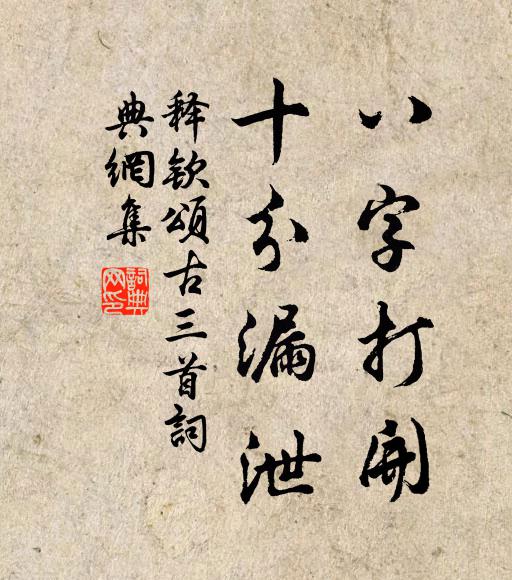 八字打開
十分漏泄
释欽頌古三首詞
典網集
詞典網印